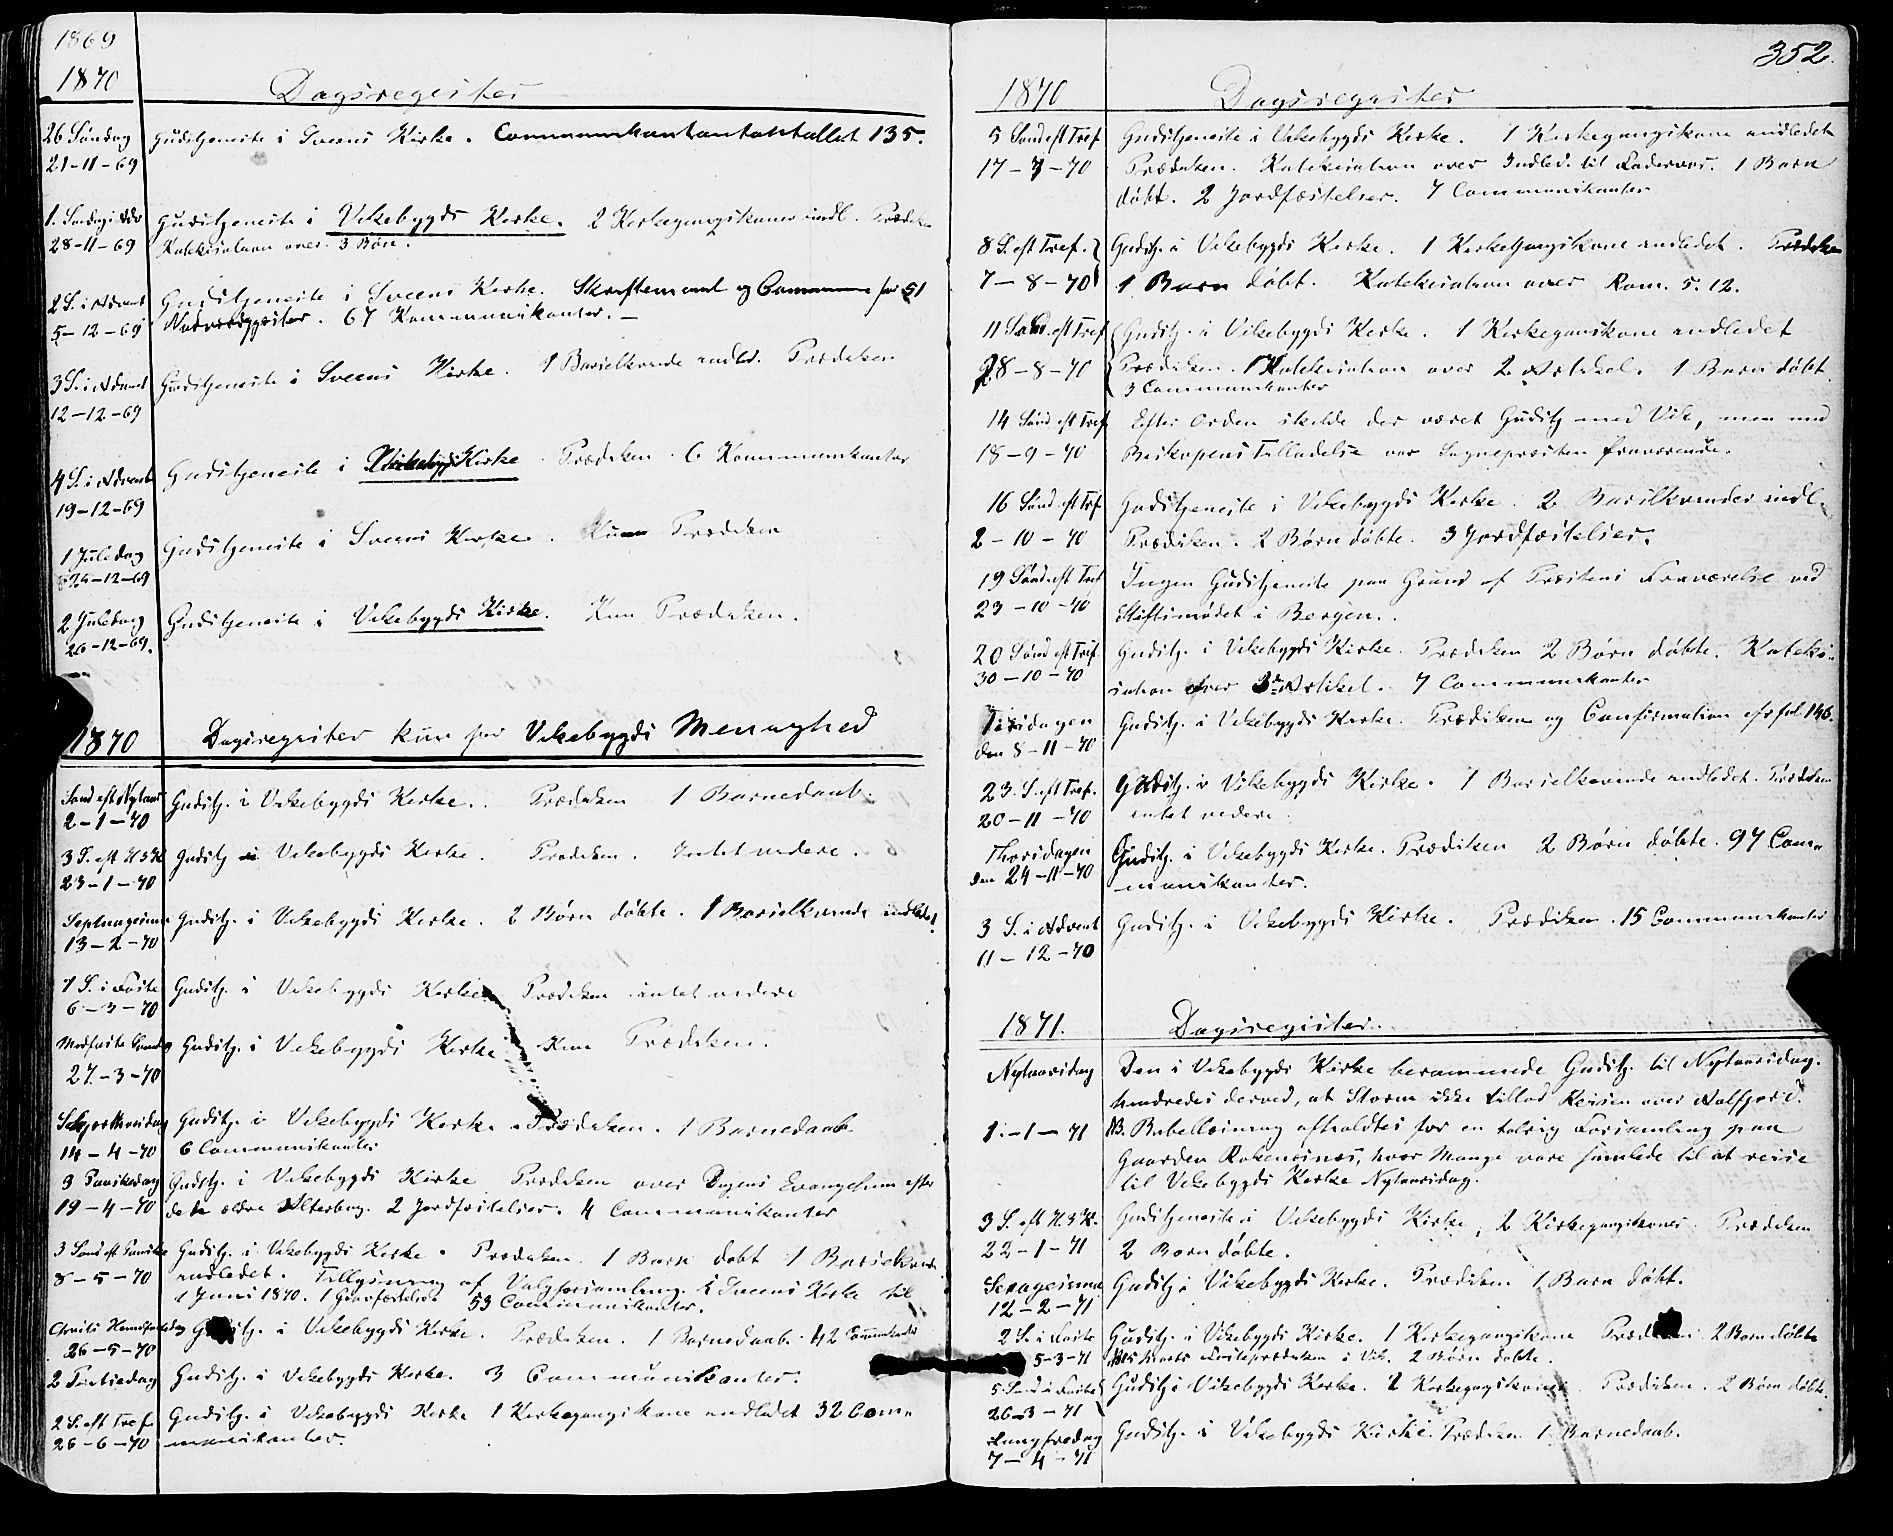 1869
1870
Dagsregister
26 Søndag Gudstjeneste i Sveens Kirke. Communikantantallet 135.
21-11-69
1. Søndag i Adv Gudstjeneste i Vikebygds Kirke. 2 Kirkegangskoner indl. Prædiken
28-11-69 Katekisation over 3 Bøn.
2 S. i Advent Gudstjeneste i Sveens Kirke. Skriftemaal og Commun for 51
5-12-69 67 Kommunikanter.
3 S. i Advent Gudstjeneste i Sveens Kirke. 1 Barselkvinde indled. Prædiken
12-12-69
4 S. i Advent Gudstjeneste i Vikebygds Kirke. Prædiken. 6 Kommunikanter
19-12-69
1 Juledag Gudstjeneste i Sveens Kirke. Kun Prædiken
25-12-69
2 Juledag Gudstjeneste i Vikebygds Kirke. Kun Prædiken.
26-12-69.
1870 Dagsregister kun for Vikebygds Menighed
Sønd eft Nytaar Gudstj. i Vikebygds Kirke. Prædiken 1 Barnedaab.
2-1-70
3 S. eft H3K Gudstj i Vikebygds Kirke. Prædiken. Intet videre.
23-1-70
Septuagesima Gudstj. i Vikebygds Kirke. 2 Børn døbte. 1 Barselkvinde indledet
13-2-70
1 S. i Faste Gudstj. i Vikebygds Kirke. Prædiken intet videre
6-3-70
Midfaste Søndag Gudstj. i Vikebygds Kirke. Kun Prædiken.
27-3-70
Skjærthorsdag Gudstj. i Vikebygds Kirke. Prædiken. 1 Barnedaab.
14-4-70 6 Communikanter
3 Paaskedag Gudstj. i Vikebygds Kirke Prædiken over Dagens Evangelium efter
19-4-70 den ældre Alterbog. 2 Jordfæstelser. 4 Communikanter
3 Sønd eft Paaske Gudstj. i Vikebygds Kirke. Prædiken. 1 Barn døbt 1 Barselkvinde
8-5-70 indledet. Tillysning af Valgforsamling i Sveens Kirke til
1 Juni 1870. 1 Gravfæstelse 53 Communikanter.
Christi Himmelfartsdag Gudstj. i Vikebygds Kirke. Prædiken. 1 Barnedaab. 42
26-5-70
2 Pintsedag Gudstj. i Vikebygds Kirke. 3 Communikanter.
2 S. eft Tref Gudstj. i Vikebygds Kirke 1 Kirkegangskone indledet 32 Com-
26-6-70 munikanter.
352.
1870 Dagsregister
5 Sønd eft Tref Gudstjeneste i Vikebygds Kirke. 1 Kirkegangskone indledet
17-7-70 Prædiken. Katekisation over Indled. til Fadervor. 1 Barn
døbt. 2 Jordfæstelser. 7 Communikanter
8 S. eft Tref. Gudstj. i Vikebygds Kirke. 1 Kirkegangskone indledet. Prædiken
7-8-70 1 Barn døbt. Katekisation over Rom. 5. 12.
11 Sønd. eft Tref Gudstj. i Vikebygds Kirke. 1 Kirkegangskone indledet
28-8-70 Prædiken. Katekisation over 2 Artikel. 1 Barn døbt.
3 Communikanter
14 Sønd eft Tref Efter Orden skulde der været Gudstj med Vik, men med
18-9-70 Biskopens Tilladelse var Sognepræsten fraværende.
16 Sønd eft Tref Gudstjeneste i Vikebygds Kirke. 2 Barselkvinder indl.
2-10-70 Prædiken. 2 Børn døbte. 3 Jordfæstelser.
19 Sønd. eft Tref Ingen Gudstjeneste paa Grund af Præstens Fraværelse ved
23-10-70 Stiftsmødet i Bergen.
20 Sønd eft Tref Gudstj. i Vikebygds Kirke. Prædiken 2 Børn døbte. Kateki-
30-10-70 sation over 3die Artikel. 7 Communikanter
Tirsdagen Gudstj. i Vikebygds Kirke. Prædiken og Confirmation cfr fol 146.
den 8-11-70
23. S. eft Tref. Gudstj. i Vikebygds Kirke. 1 Barselkvinde indledet. Prædiken
20-11-70 intet videre.
Thorsdagen Gudstj. i Vikebygds Kirke. Prædiken 2 Børn døbte. 97 Com-
den 24-11-70 munikanter.
3 S. i Advent Gudstj. i Vikebygds Kirke. Prædiken. 15 Communikanter
11-12-70
1871. Dagsregister.
Nytaarsdag Den i Vikebygds Kirke berammede Gudstj. til Nytaarsdag
hindredes derved, at Storm ikke tillod Reisen over Aalfjord.
1-1-71 NB. Bibellæsning afholdtes for en talrig Forsamling paa
Gaarden Rokenesnæs, hvor Mange vare samlede til at reise
til Vikebygds Kirke Nytaarsdag.
3 S. eft H3K. Gudstjeneste i Vikebygds Kirke, 2 Kirkegangskoner. Prædiken
22-1-71 2 Børn døbte.
Sexagesima Gudstj. i Vikebygds Kirke. Prædiken 1 Barn døbt.
12-2-71
2 S. i Faste Gudstj. i Vikebygds Kirke. 1 Kirkegangskone Prædiken. 2 Børn døbte
5-3-71 Marts Fasteprædiken i Vik. 2 Børn døbte.
5 Sønd i Faste Gudstj i Vikebygds Kirke. 2 Kirkegangskoner. Prædiken. 2 Børn døbte.
26-3-71
Langfredag Gudstj. i Vikebygds Kirke. Prædiken 1 Barnedaab.
7-4-71